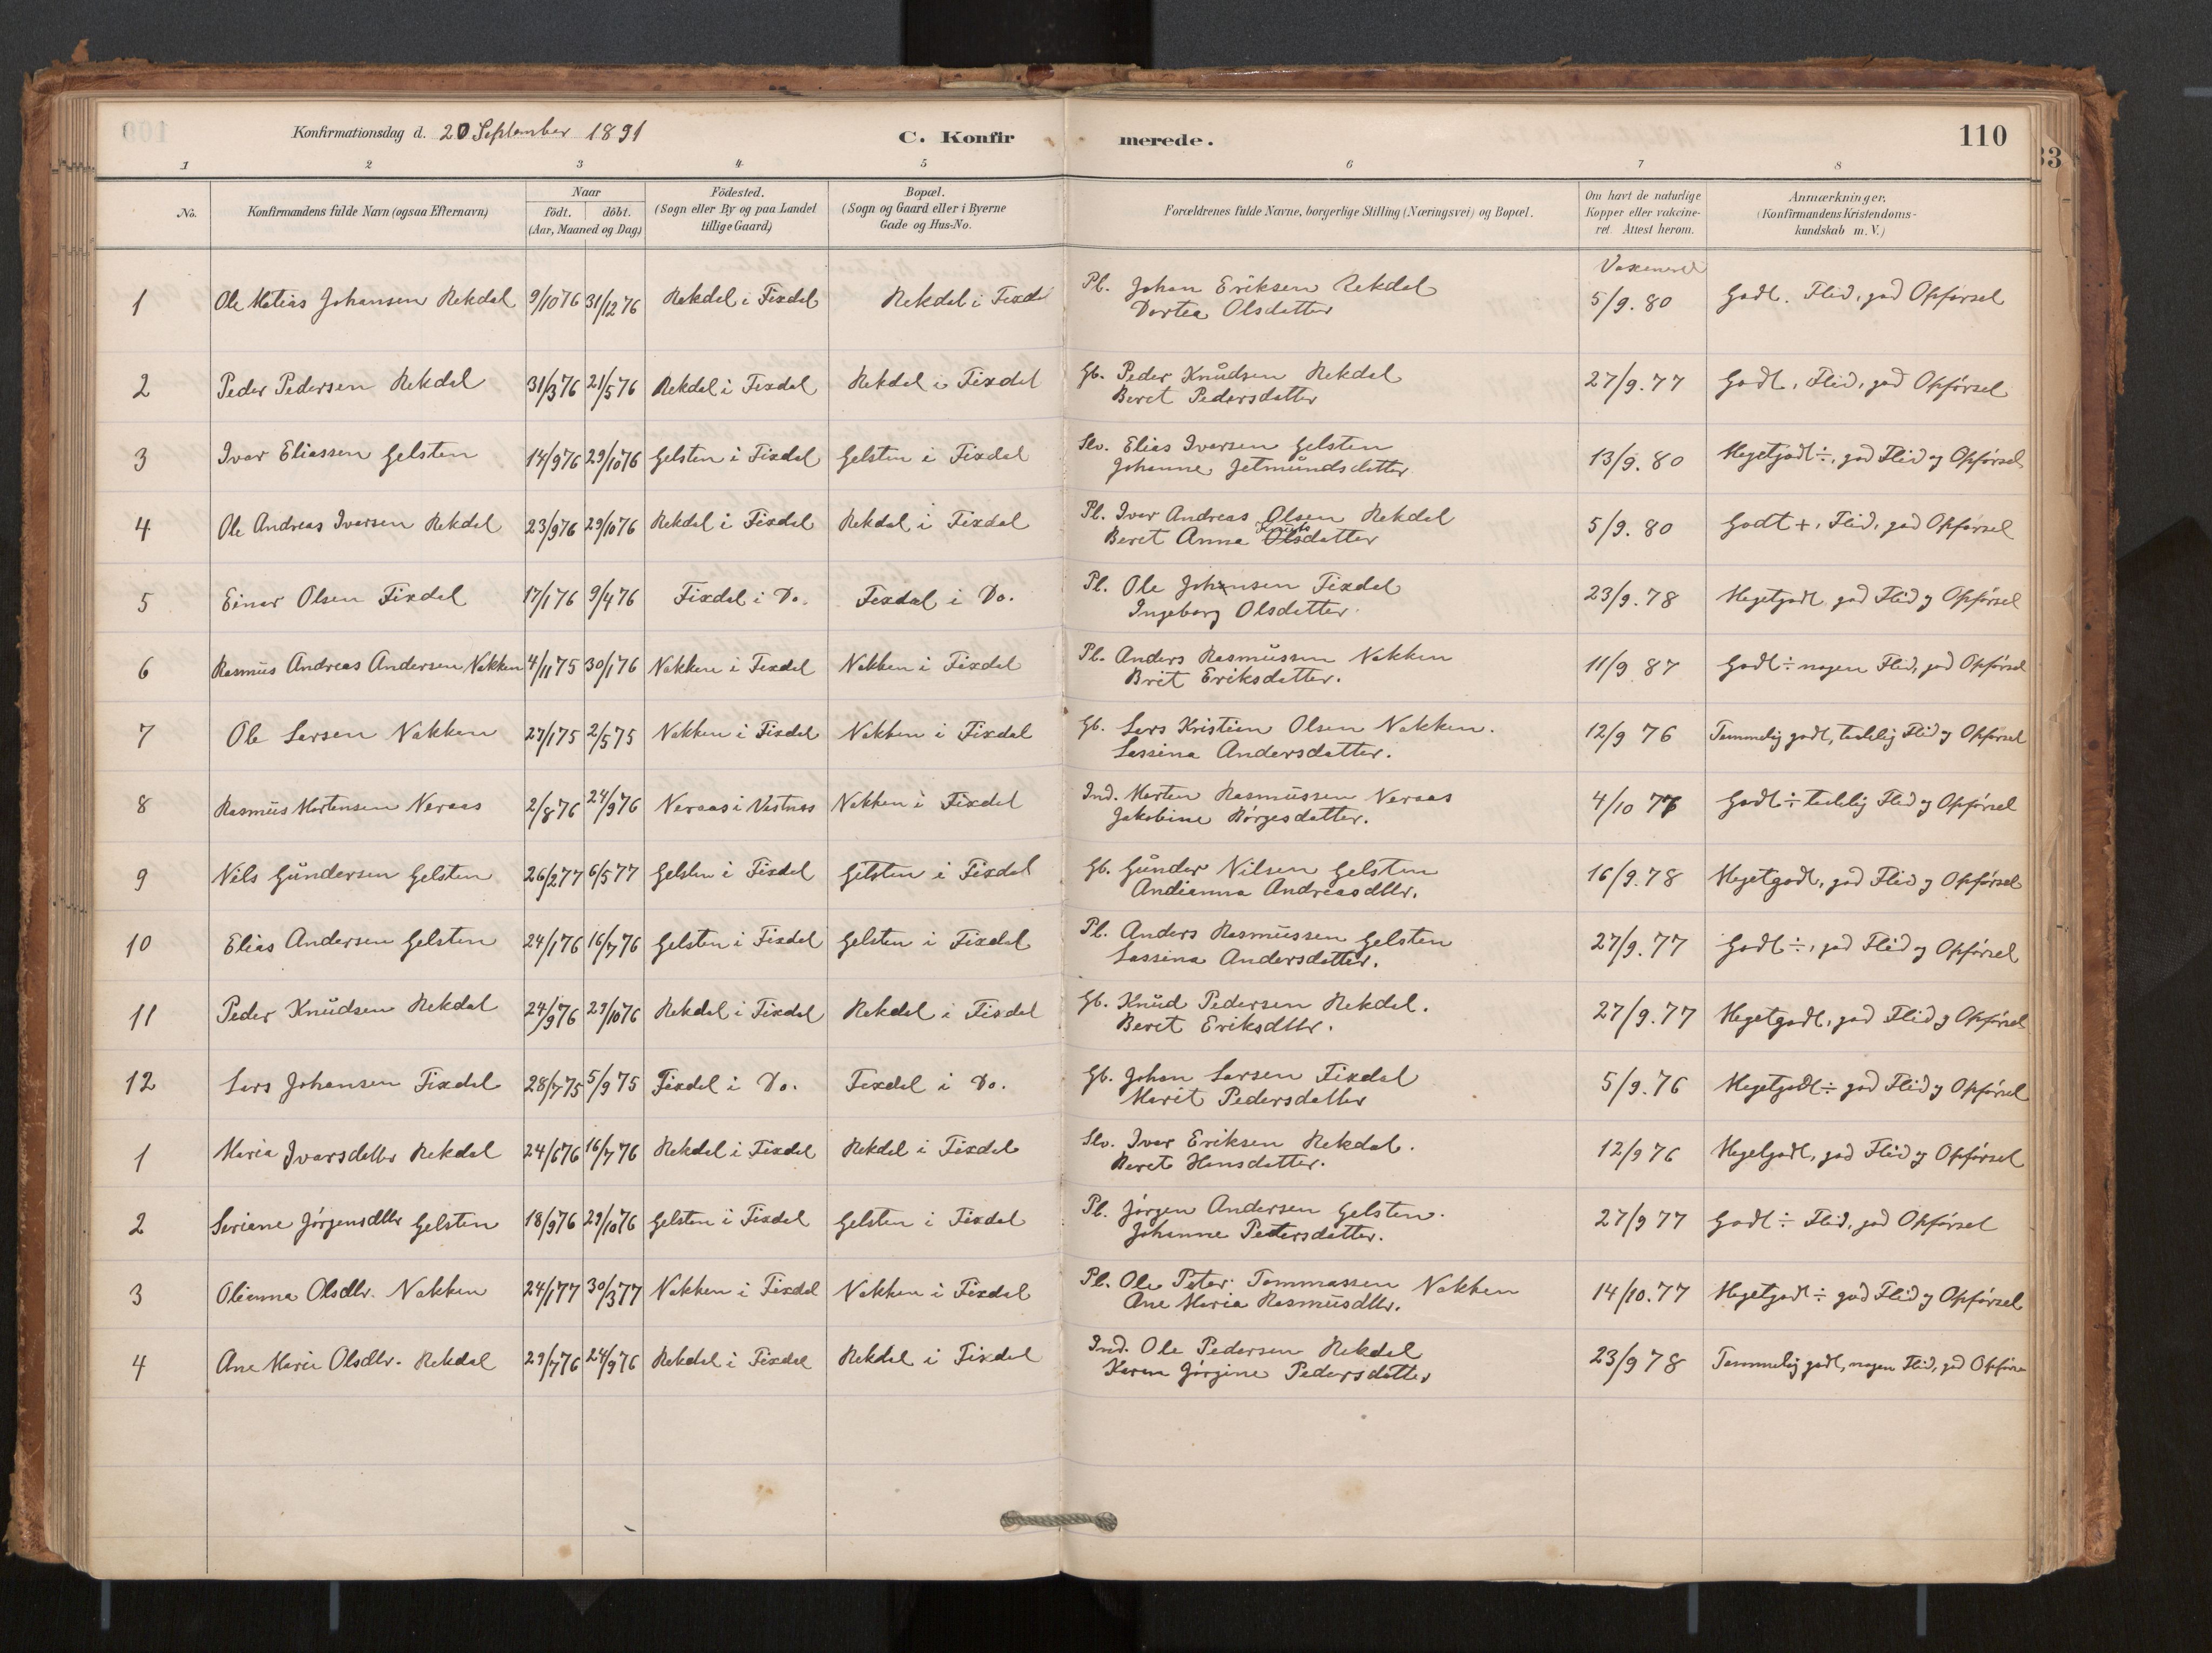 Konfirmationsdag d. 20 September 1891
C. Konfirmerede.
110
33
1 2 3 4 5 6 7 8
No.
Konfirmandens fulde Navn (ogsaa Efternavn)
Naar
födt. döbt.
(Aar, Maaned og Dag)
Födested.
(Sogn eller By og paa Landet
tillige Gaard)
Bopæl.
(Sogn og Gaard eller i Byerne
Gade og Hus-No.
Forældrenes fulde Navne, borgerlige Stilling (Næringsvei) og Bopæl.
Om havt de naturlige
Kopper eller vakcine-
ret. Attest herom.
Anmærkninger,
(Konfirmandens Kristendoms-
kundskab m. V.)
1 Ole Matias Johansen Rekdal 9/10 76 31/12 76 Rekdal i Fixdal Rekdal i Fixd Pl. Johan Eriksen Rekdal 5/9. 80 Godt. Flid, god Opförsel
Dortea Olsdatter
2 Peder Pedersen Rekdal 31/3 76 21/5 76 Rekdal i Fixdal Rekdal i Fixdal Gb. Peder Knudsen Rekdal 27/9. 77 Godt, Flid, god Opförsel
Beret Pedersdatter
3 Ivar Eliassen Gelsten 14/9 76 29/10 76 Gelsten i Fixdal Gelsten i Fixdal Slv. Elias Iversen Gelsten 13/9. 80 Megetgodt ÷, god Flid og Opförsel
Johanne Jetmundsdatter
4 Ole Andreas Iversen Rekdal 23/9 76 29/10 76 Rekdal i Fixdal Rekdal i Fixdal Pl. Iver Andreas Olsen Rekdal 5/9. 80 Godt +, Flid, god Opförsel
Beret Anna Olsdatter
5 Einar Olsen Fixdal 17/1 76 9/4 76 Fixdal i Do. Fixdal i Do. Pl. Ole Johansen Fixdal 23/9. 78 Megetgodt, god Flid og Opförsel
Ingeborg Olsdatter
6 Rasmus Andreas Andersen Nakken 4/11 75 30/1 76 Nakken i Fixdal Nakken i Fixdal Pl. Anders Rasmussen Nakken 11/9 87 Godt ÷ nogen Flid, god Opförsel
Brit Eriksdatter.
7 Ole Larsen Nakken 27/1 75 2/5 75 Nakken i Fixdal Nakken i Fixdal Gb. Lars Kristian Olsen Nakken. 12/9 76 Temmelig godt, tadelig Flid og Opförsel
Lassina Andersdatter.
8 Rasmus Martensen Neraas 2/8 76 24/9 76 Neraas i Vestnes Nakken i Fixdal Ind. Marten Rasmussen Neraas 4/10 77 Godt ÷ tadelig Flid og Opförsel
Jakobine Börgesdatter.
9 Nils Gundersen Gelsten 26/2 77 6/5 77 Gelsten i Fixdal Gelsten i Fixdal Gb. Gunder Nilsen Gelsten 16/9. 78 Megetgodt, god Flid og Opförsel
Andianna Andreasdttr.
10 Elias Andersen Gelsten 24/1 76 16/7 76 Gelsten i Fixdal Gelsten i Fixdal Pl. Anders Rasmussen Gelsten 27/9. 77 Godt ÷, god Flid og Opförsel
Lassina Andersdatter.
11 Peder Knudsen Rekdal 24/9 76 29/10 76 Rekdal i Fixdal Rekdal i Fixdal Gb. Knud Pedersen Rekdal. 27/9. 77 Megetgodt, god Flid og Opförsel
Beret Eriksdttr.
12 Lars Johansen Fixdal 28/7 75 5/9 75 Fixdal i Do. Fixdal i Do. Gb. Johan Larsen Fixdal 5/9. 76 Megetgodt ÷ god Flid og Opförsel
Marit Pedersdatter
1 Maria Ivarsdattr Rekdal 24/6 76 16/7 76 Rekdal i Fixdal Rekdal i Fixdal Slv. Ivar Eriksen Rekdal. 12/9 76 Megetgodt, god Flid og Opförsel
Beret Hansdatter.
2 Seriane Jörgensdttr Gelsten 18/9 76 29/10 76 Gelsten i Fixdal Gelsten i Fixdal Pl. Jörgen Andersen Gelsten. 27/9 77 Godt ÷ Flid, god Opförsel
Johanne Petersdatter.
3 Olianna Olsdtr. Nakken 24/1 77 30/3 77 Nakken i Fixdal Nakken i Fixdal Pl. Ole Peter Tommassen Nakken 14/10. 77 Megetgodt ÷ god Flid og Opförsel
Ane Maria Rasmusdttr.
4 Ane Marie Olsdtr. Rekdal 29/7 76 24/9 76 Rekdal i Fixdal Rekdal i Fixdal Ind. Ole Pedersen Rekdal 23/9 78 Temmelig godt, nogen Flid, god Opförse
Karen Jörgine Pedersdatter